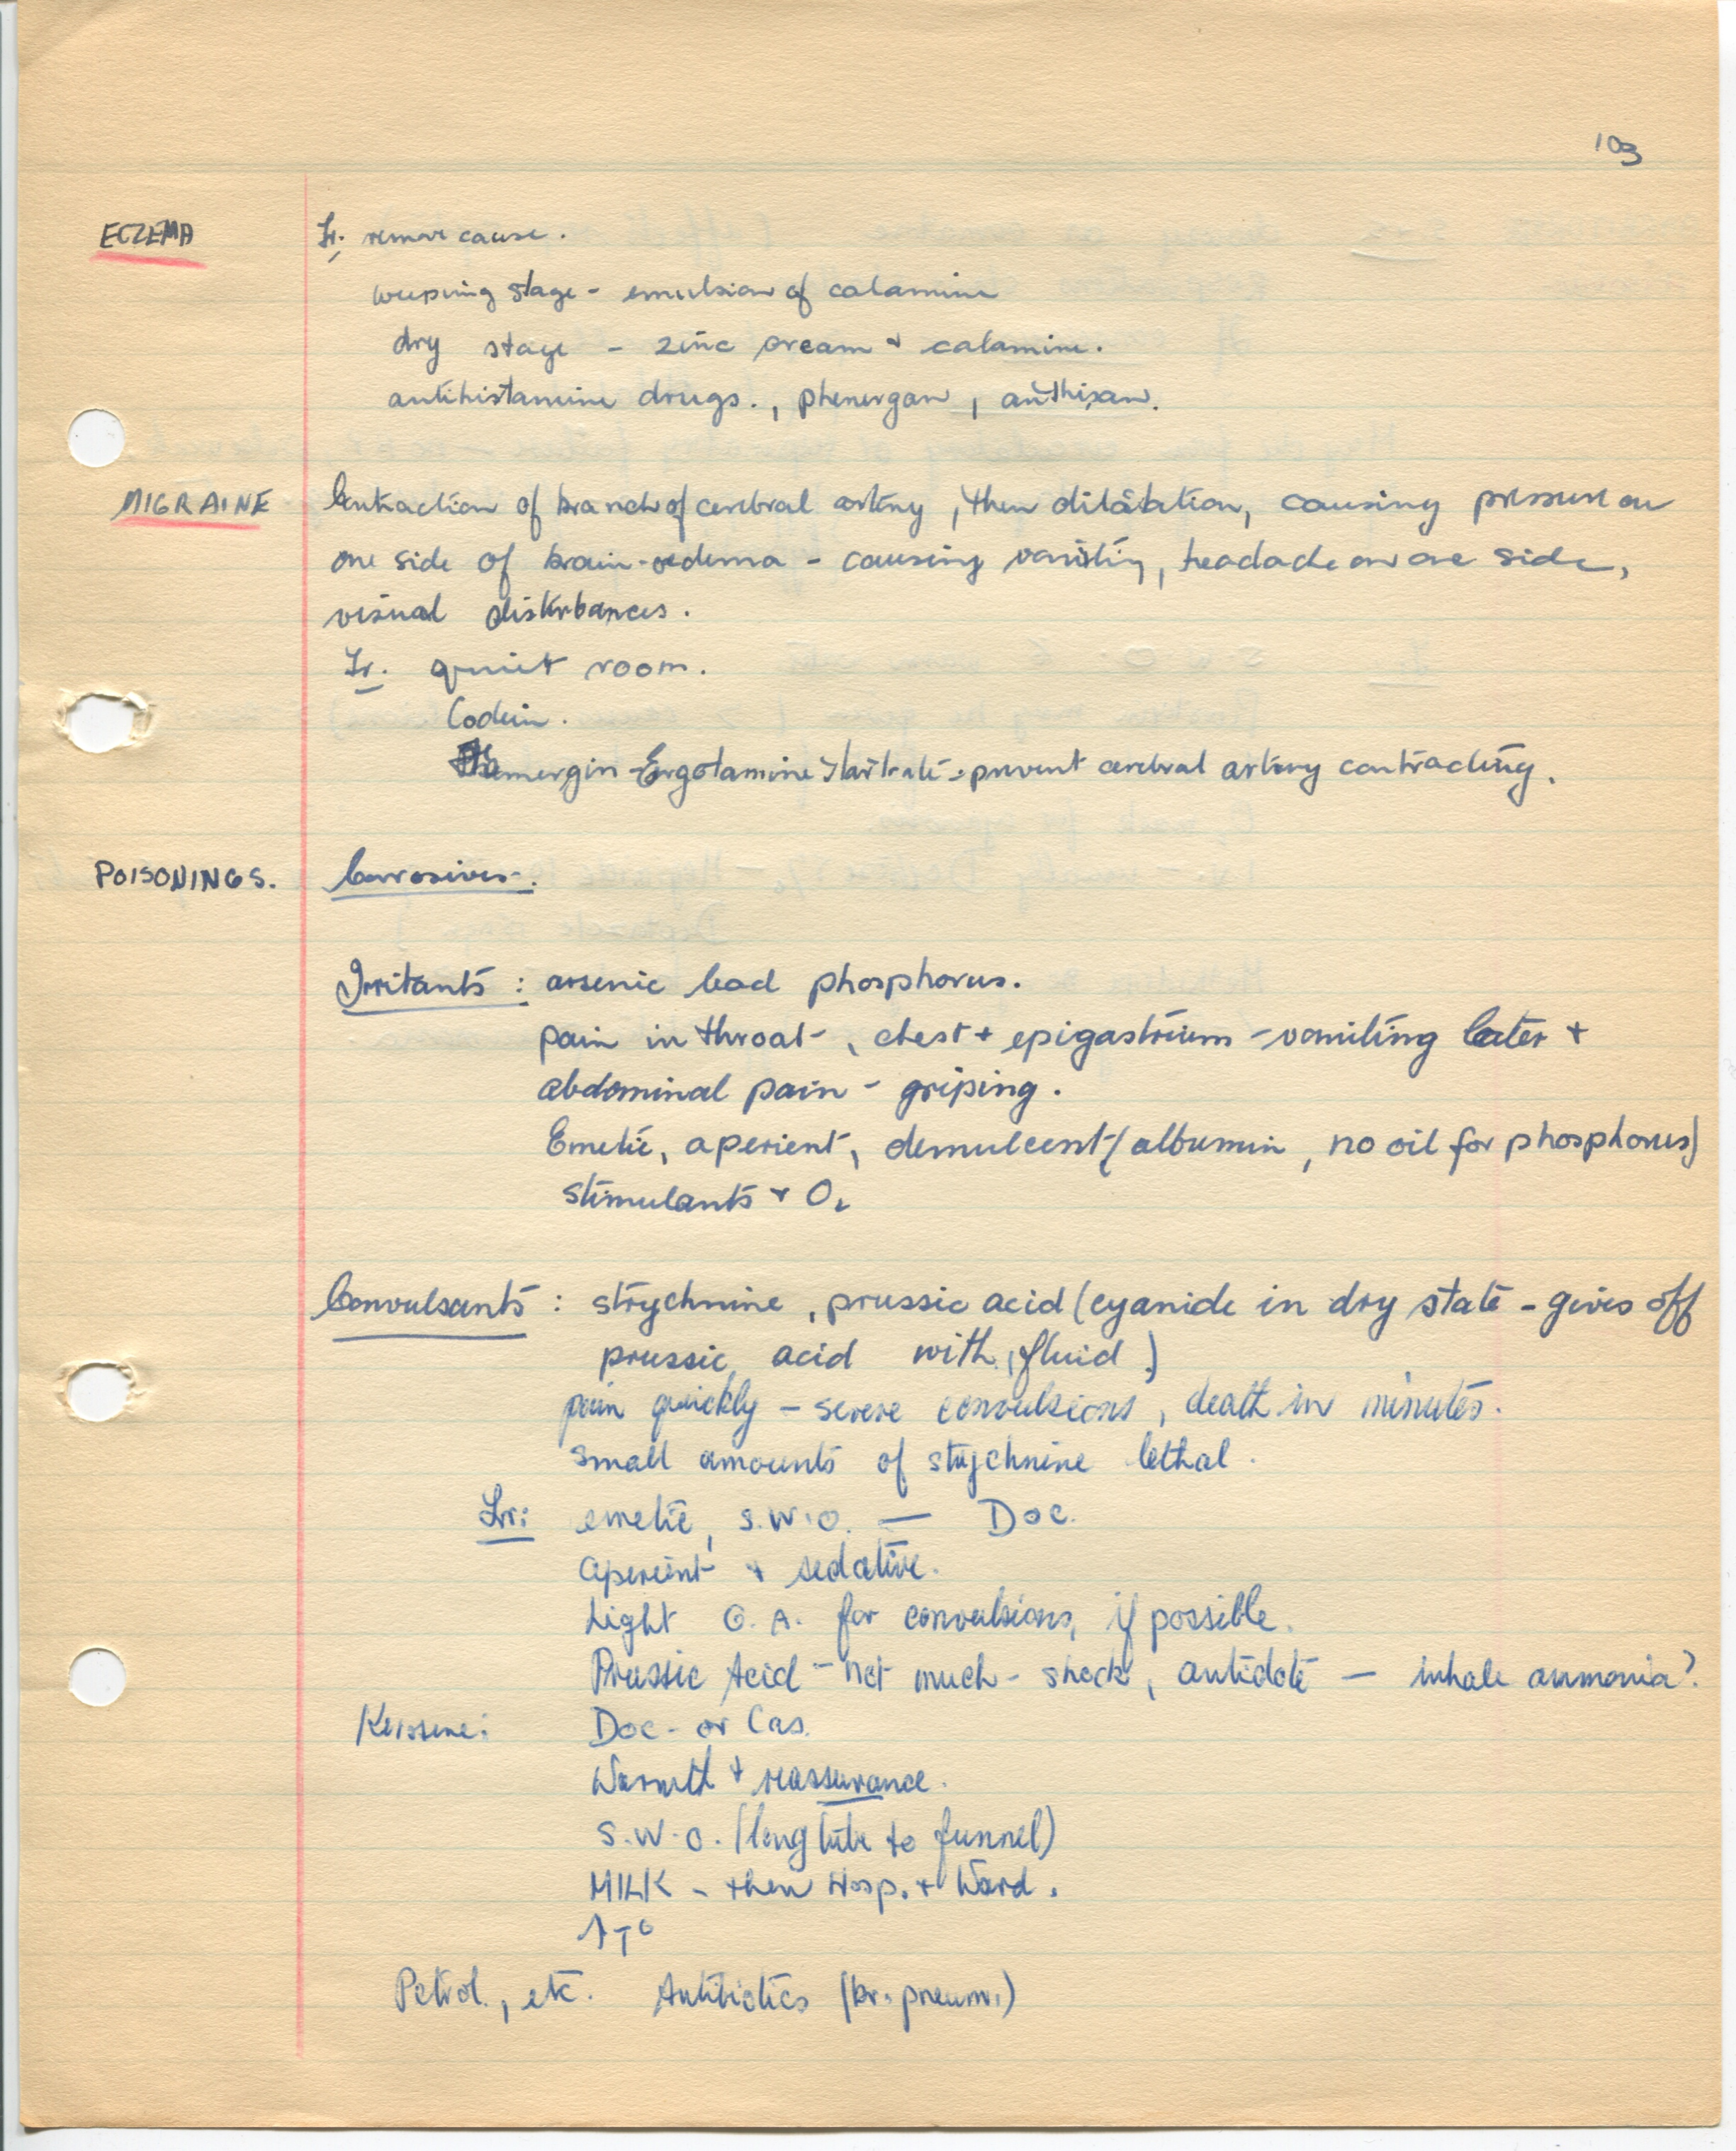 103
ECZEMA Tr: remove cause.
weeping stage - emulsion of calamine
dry stage - zinc cream + calamine.
antihistamine drugs., phenergan, anthisan.
MIGRAINE Contraction of branch of cerebral artery, then dilatation, causing pressure on
one side of brain - oedema - causing vomiting, headache on one side,
visual disturbances.
Tr. quiet room.
Codein.
Femergin - Ergotamine Tartrate = prevent cerebral artery contracting.
POISONINGS. Corrosives:
Irritants: arsenic lead phosphorus.
pain in throat, chest + epigastrium - vomiting later +
abdominal pain - griping.
Emetic, aperient, demulcent (albumin, no oil for phosphorus)
stimulants + O2
Convulsants: strychnine, prussic acid (cyanide in dry state - gives off
prussic acid with fluid)
pain quickly - severe convulsions, death in minutes.
small amounts of strychnine lethal.
Tr: emetic, S.W.O. — Doc.
aperient + sedative.
Light G.A. for convulsions, if possible.
Prussic Acid - not much - shock, antidote — inhale ammonia?
Kerosene: Doc - or Cas.
Warmth + reassurance.
S.W.O. (long tube to funnel)
MILK - then Hosp. + Ward.
↑T°
Petrol, etc. Antibiotics (br. pneum.)